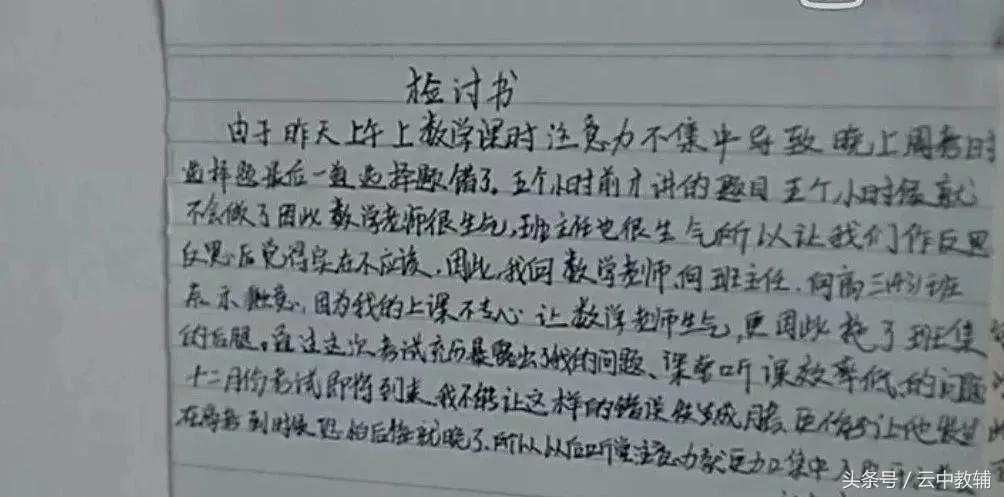 检讨书
由于昨天上午上数学课时注意力不集中导致晚上周考时
选择题最后一道选择题错了。五个小时前才讲的题目五个小时后就
不会做了因此数学老师很生气,班主任也很生气所以让我们作反思
反思后觉得实在不应该,因此,我向数学老师、向班主任、向高三
表示歉意,因为我的上课不专心让数学老师生气,更因此拖了班集
的后腿。在这次考试充分暴露出了我的问题、课堂听课效率低的问题
十二月份考试即将到来,我不能让这样的错误
到时候恐怕后悔就晚了,所以以后听课注意力就更加集中
头条号/云中教辅